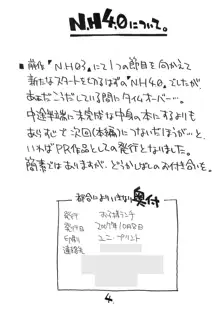 N.H4.0について。
■前作『N.H03』にて1つの節目を向かえて
新たなスタートをむかえるはずの『NH4.0』でしたが、
あぁだこうだしている間にタイムオーバー…。
中途半端に未完成な中身の本にするよりも
あらすじで次回(本編)につないだほうが…と、
いわばPR作品としての発行となりました。
簡素ではありますが、どうかしばしのお付き合いを。
都合によりいきなり奥付
発行
発行日 2007年10月8日
印刷 ユニープリント
連絡先
4.